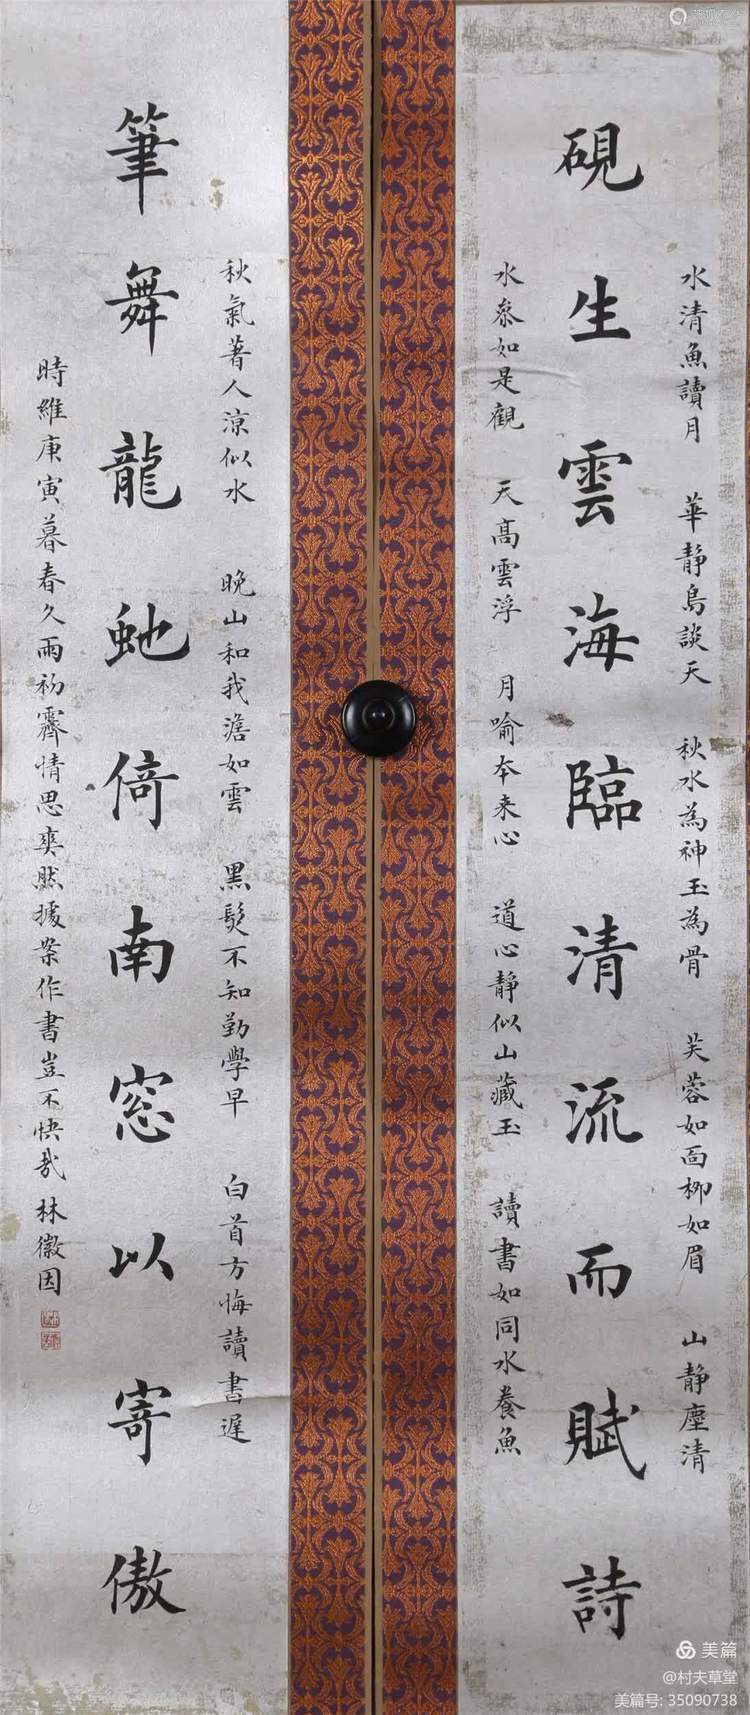 水清魚讀月　華靜鳥談天　秋水為神玉為骨　芙蓉如面柳如眉　山靜塵清
硯生雲海臨清流而賦詩
水叅如是觀　天高雲浮　月喻本来心　道心靜似山藏玉　讀書如同水養魚
秋氣著人涼似水　晚山和我澹如雲　黑髮不知勤學早　白首方悔讀書遲
筆舞龍虵倚南窓以寄傲
時維庚寅暮春久雨初霽情思奕然據案作書豈不快哉 林徽因
美篇
@村夫草堂
美篇号: 35090738